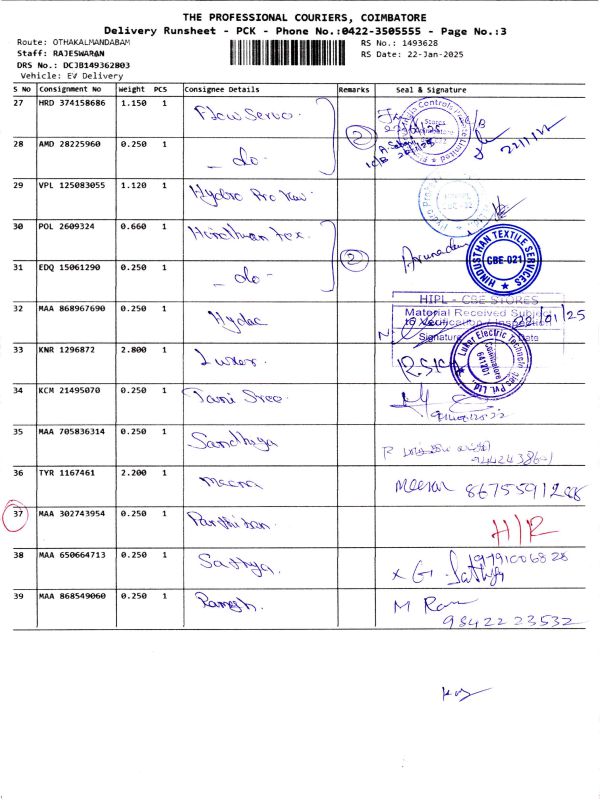 THE PROFESSIONAL COURIERS, COIMBATORE
Delivery Runsheet - PCK - Phone No.:0422-3505555 - Page No.:3
Route: OTHAKALMANDABAM
RS No.: 1493628
Staff: RAJESWARAN
RS Date: 22-Jan-2025
DRS No.: DCJB149362803
Vehicle: EV Delivery
S No Consignment No Weight PCS Consignee Details Remarks Seal & Signature
27 HRD 374158686 1.150 1 Flow Servo 2
28 AMD 28225960 0.250 1 - do -
29 VPL 125083055 1.120 1 Hydro
30 POL 2609324 0.660 1 Hindthan Tex. 2
31 EDQ 15061290 0.250 1 - do -
HINDUSTHAN TEXTILE SERVICES
CBE-021
32 MAA 868967690 0.250 1 Hydac
HIPL - CBE STORES
Material Received Subject
to Verification / Inspection
Signature Date
22/01/25
33 KNR 1296872 2.800 1 Luker.
Luker Electric Technologies Pvt. Ltd.
Coimbatore
641201
34 KCM 21495070 0.250 1 Tami Sree
35 MAA 705836314 0.250 1 Sandhya
36 TYR 1167461 2.200 1 Meena
37 MAA 302743954 0.250 1 Parthiban H/R
38 MAA 650664713 0.250 1 Sathya. x G. Sathya 9791006828
39 MAA 868549060 0.250 1 Ramesh. M Ram
9842223532